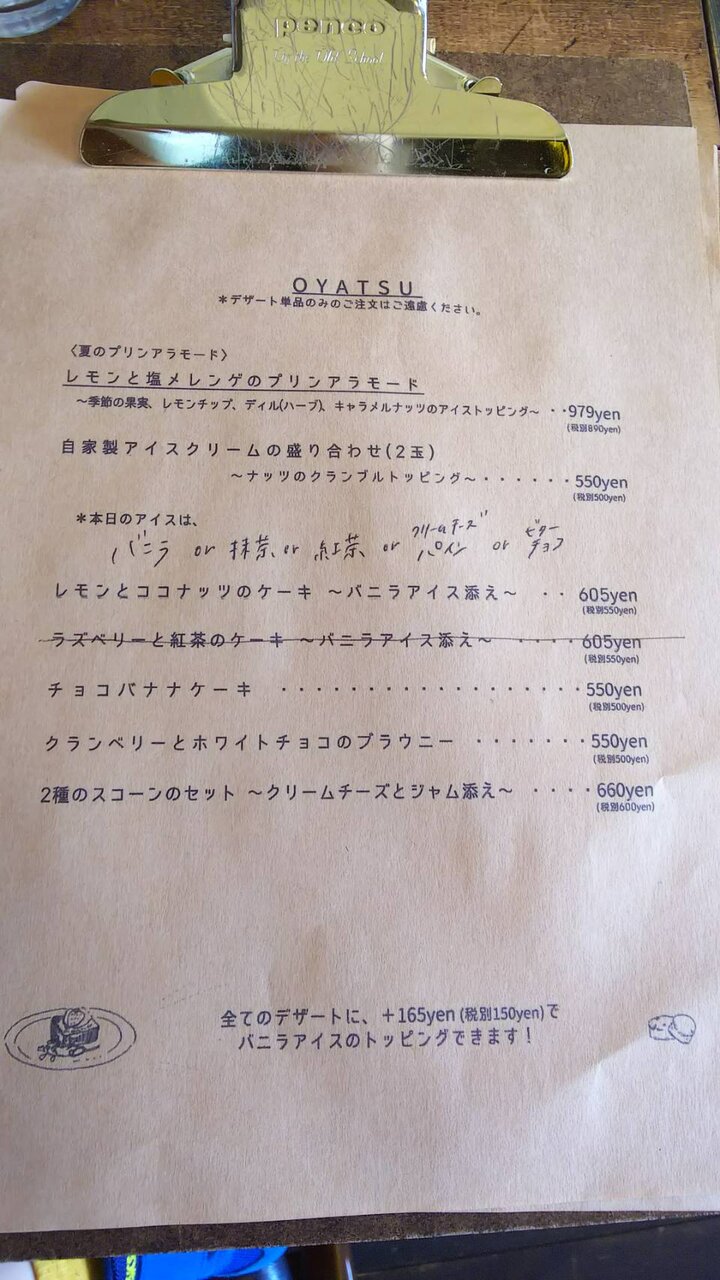 penco
OYATSU
＊デザート単品のみのご注文はご遠慮ください。
〈夏のプリンアラモード〉
レモンと塩メレンゲのプリンアラモード
～季節の果実、レモンチップ、ディル(ハーブ)、キャラメルナッツのアイストッピング～ ・・979yen
(税別890yen)
自家製アイスクリームの盛り合わせ(2玉)
～ナッツのクランブルトッピング～・・・・・・550yen
(税別500yen)
＊本日のアイスは、
バニラ or 抹茶 or 紅茶 or クリームチーズパイン or ビターチョコ
レモンとココナッツのケーキ ～バニラアイス添え～ ・・ 605yen
(税別550yen)
ラズベリーと紅茶のケーキ ～バニラアイス添え～ ・・・・605yen
(税別550yen)
チョコバナナケーキ ・・・・・・・・・・・・・・・・・・550yen
(税別500yen)
クランベリーとホワイトチョコのブラウニー ・・・・・・・550yen
(税別500yen)
2種のスコーンのセット ～クリームチーズとジャム添え～ ・・・・660yen
(税別600yen)
全てのデザートに、＋165yen (税別150yen)で
バニラアイスのトッピングできます！